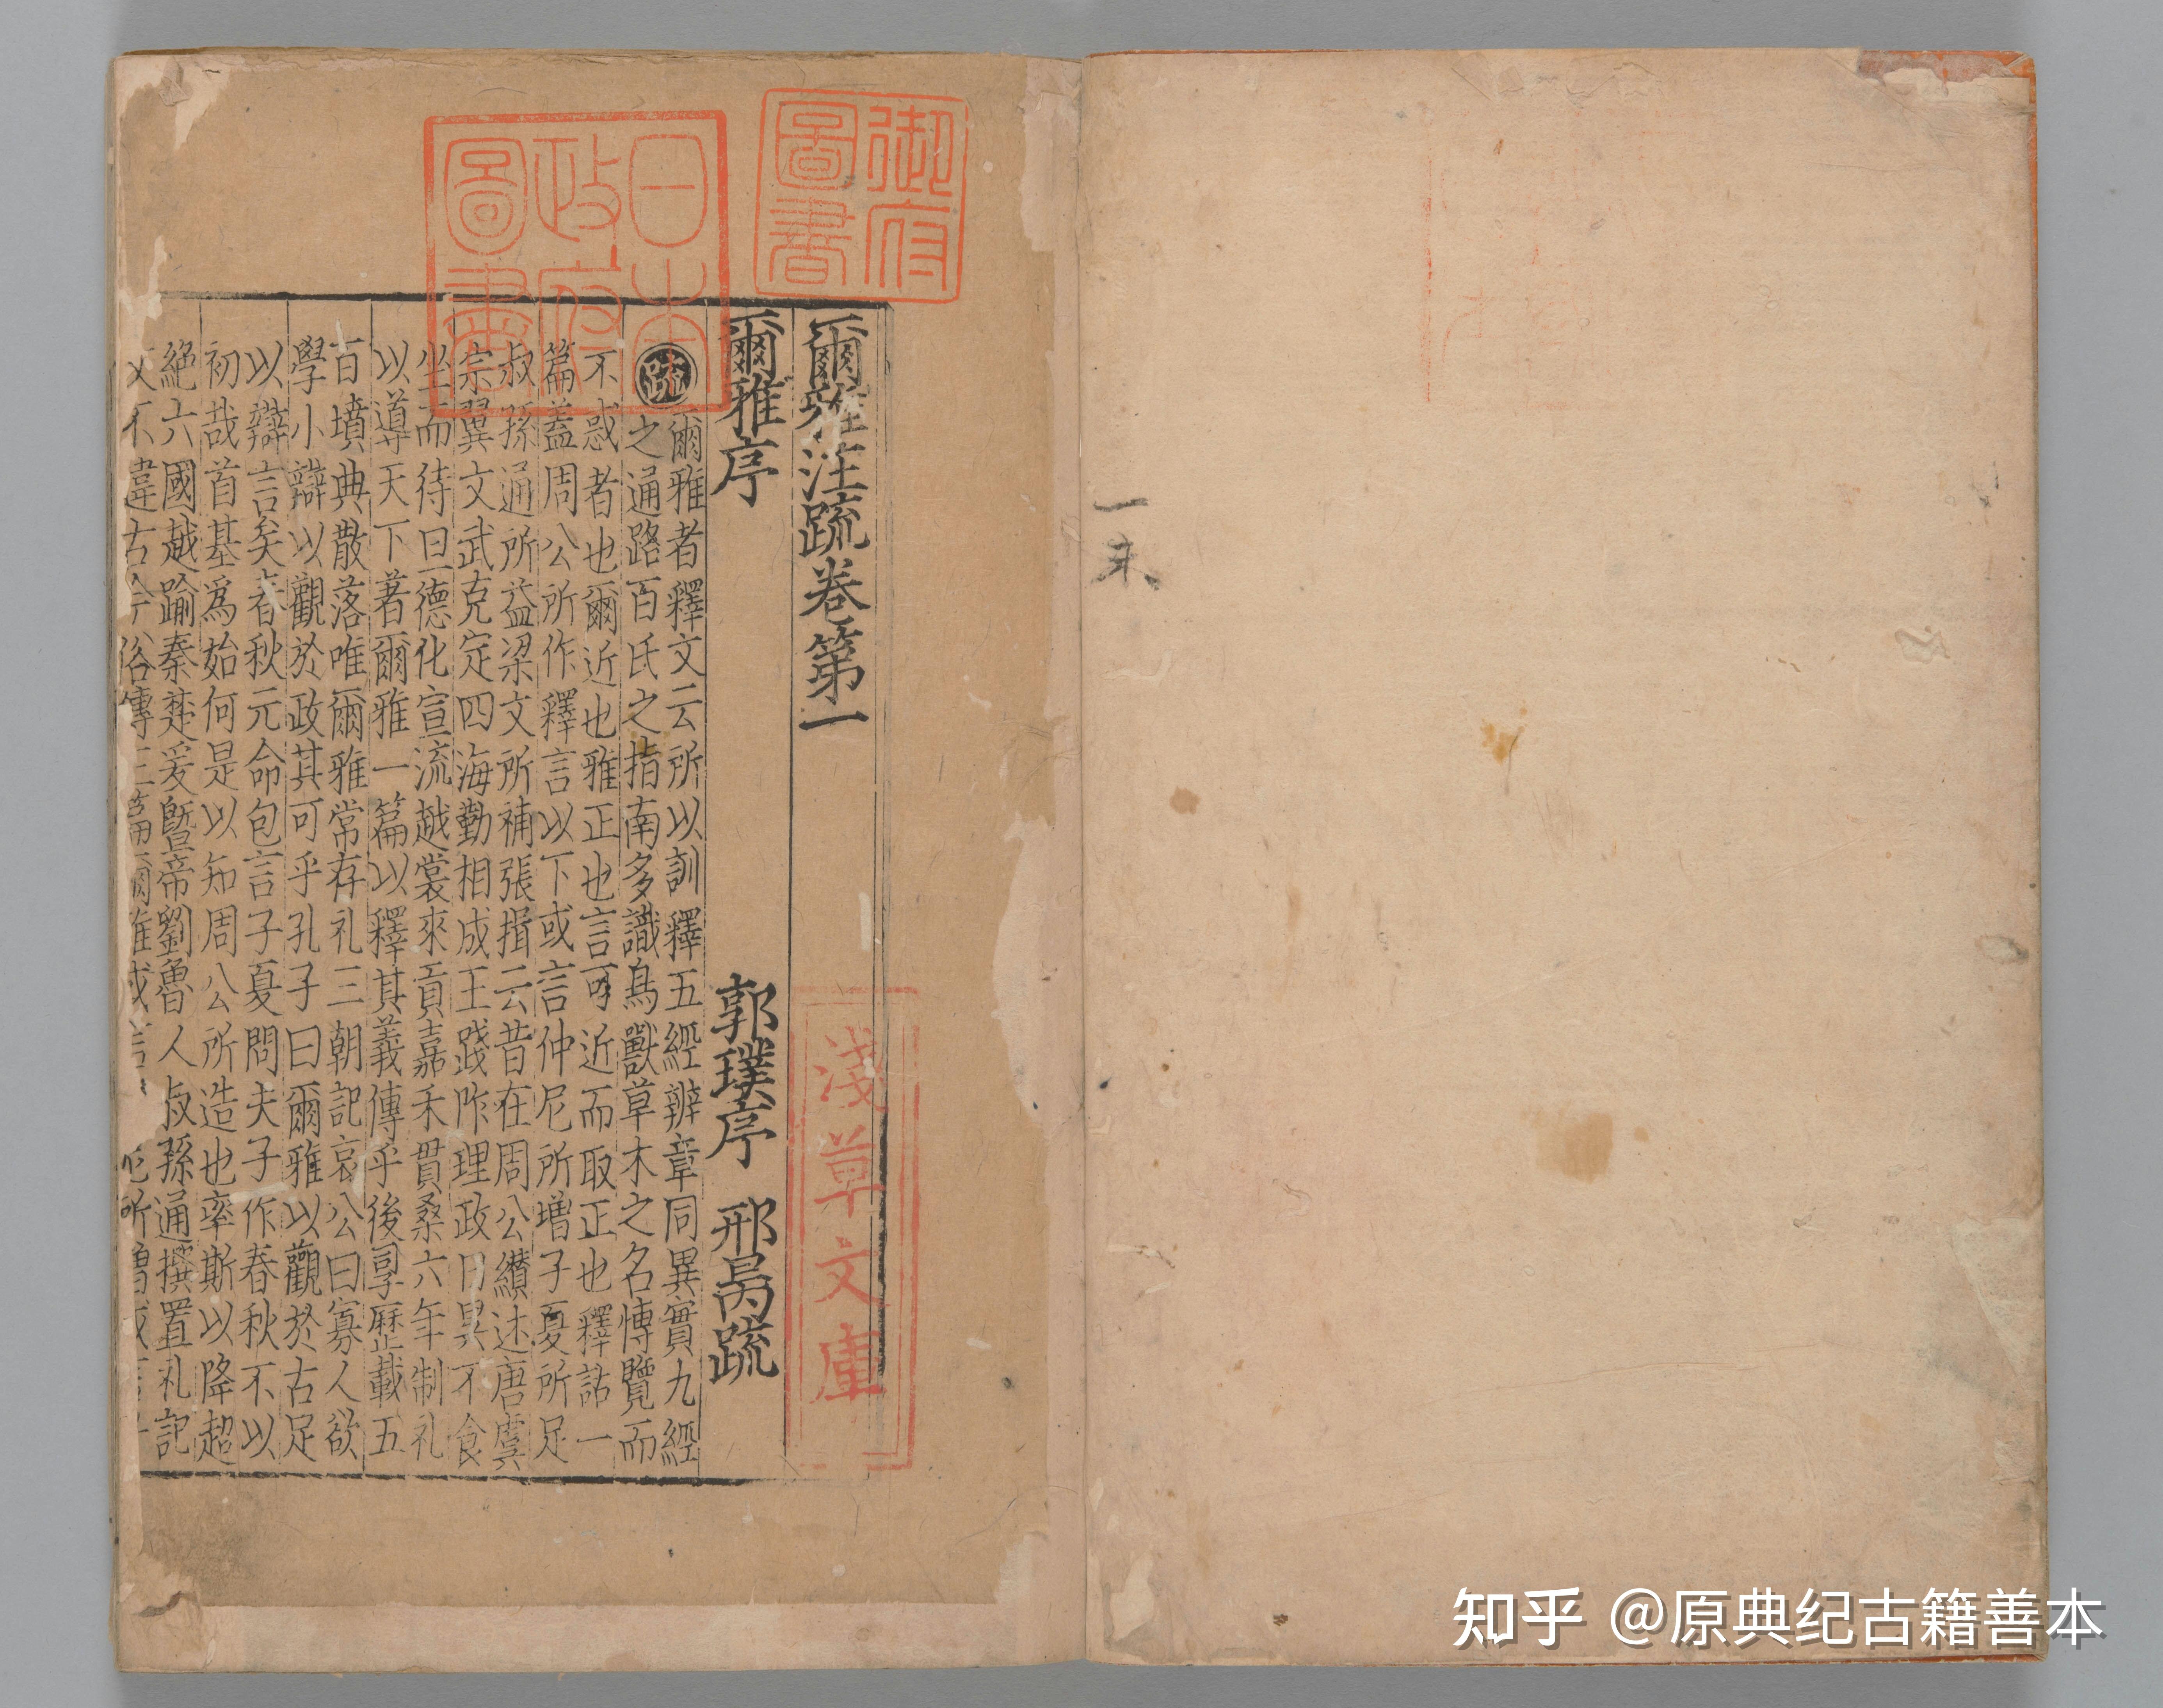 一末
御府圖書
日本政府圖書
淺草文庫
爾雅注疏卷第一
爾雅序 郭璞序 邢昺疏
爾雅者釋文云所以訓釋五經辨章同異實九經
疏 之通路百氏之指南多識鳥獸草木之名慱覽而
不惑者也爾近也雅正也言可近而取正也釋詁一
篇蓋周公所作釋言以下或言仲尼所增子夏所足
叔孫通所益梁文所補張揖云昔在周公纘述唐虞
宗翼文武克定四海勤相成王踐阼理政日昃不食
坐而待旦德化宣流越裳來貢嘉禾貫桑六年制礼
以導天下著爾雅一篇以釋其義傳乎後孠歷載五
百墳典散落唯爾雅常存礼三朝記哀公曰寡人欲
學小辯以觀於政其可乎孔子曰爾雅以觀於古足
以辯言矣春秋元命包言子夏問夫子作春秋不以
初哉首基爲始何是以知周公所造也率斯以降超
絶六國越踰秦楚爰暨帝劉魯人叔孫通撰置礼記
文不違古今俗傳三篇爾雅或言 尼所增或言子
知乎 @原典纪古籍善本